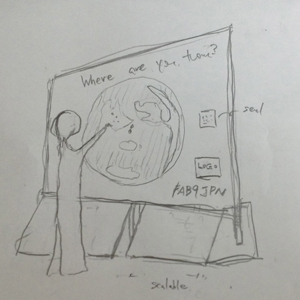 Where are you from?
seal
LOGO
FAB9JPN
scalable